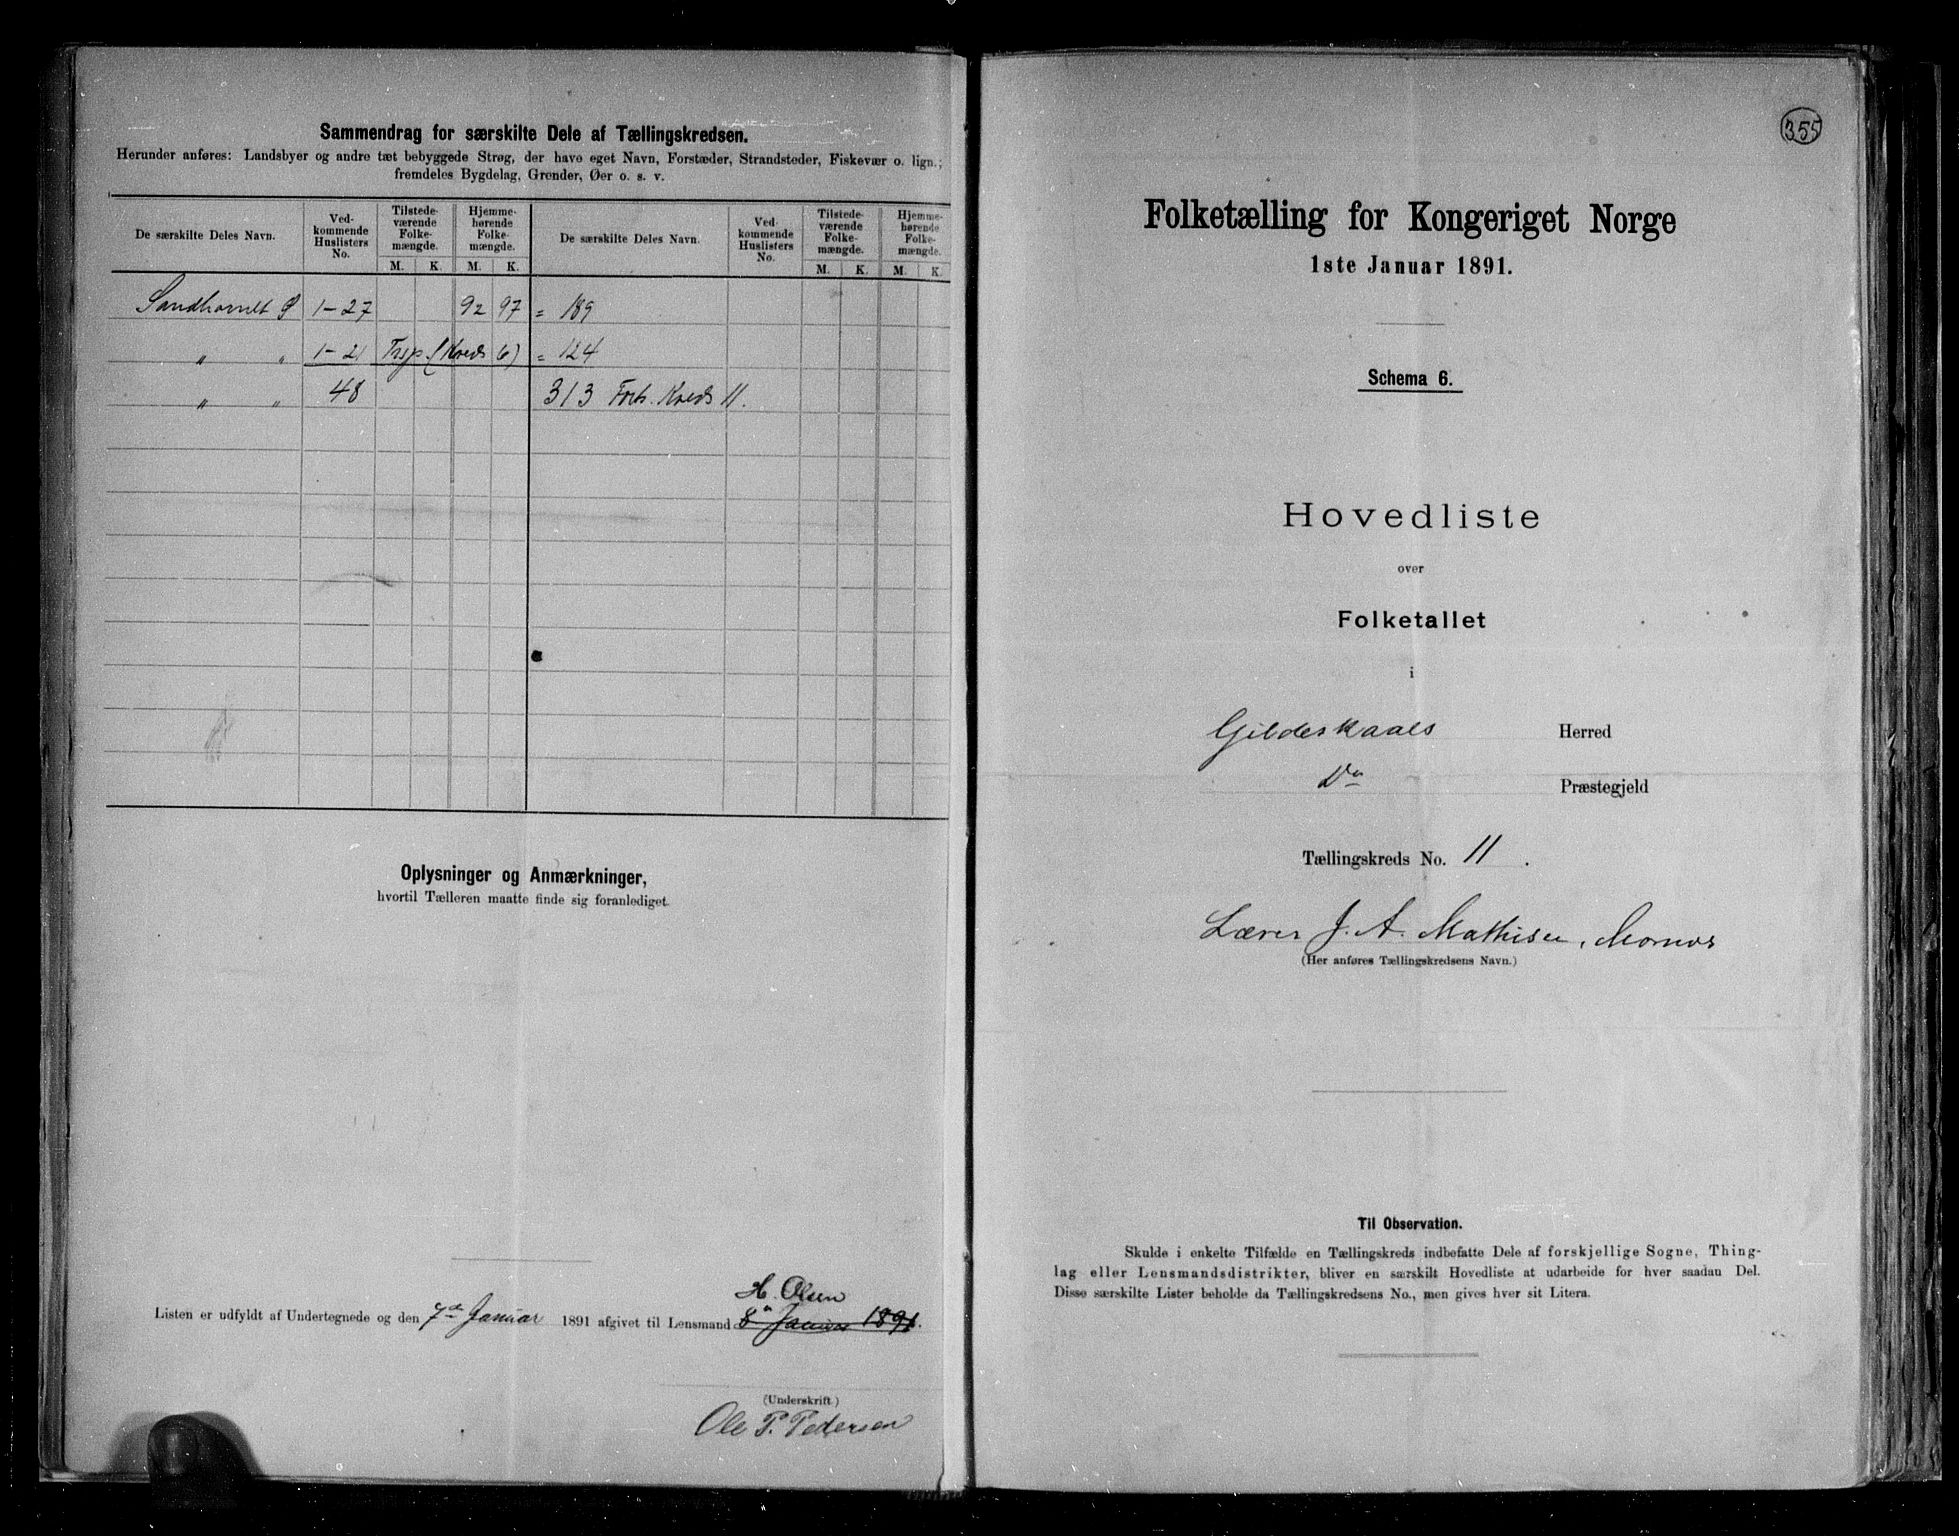 Sammendrag for særskilte Dele af Tællingskredsen.
Herunder anføres: Landsbyer og andre tæt bebyggede Strøg, der have eget Navn, Forstæder, Strandsteder, Fiskevær o. lign.;
fremdeles Bygdelag, Grender, Øer o. s. v.
De særskilte Deles Navn. Ved-kommende Huslisters No. Tilstede-værende Folke-mængde. Hjemme-hørende Folke-mængde. De særskilte Deles Navn. Ved-kommende Huslisters No. Tilstede-værende Folke-mængde. Hjemme-hørende Folke-mængde.
M. K. M. K. M. K. M. K.
Sandhornet 1-27 92 97 = 189
" " 1-21 (Kreds 6) = 124
" " 48 313 Forts. Kreds 11.
Oplysninger og Anmærkninger,
hvortil Tælleren maatte finde sig foranlediget.
H. Olsen
Listen er udfyldt af Undertegnede og den 7de Januar 1891 afgivet til Lensmand 8de Januar 1891.
(Underskrift.)
Ole P. Pedersen
355
Folketælling for Kongeriget Norge
1ste Januar 1891.
Schema 6.
Hovedliste
over
Folketallet
i
Gildeskaals Herred
Do Præstegjeld
Tællingskreds No. 11.
Lærer J. A. Mathisen,
(Her anføres Tællingskredsens Navn.)
Til Observation.
Skulde i enkelte Tilfælde en Tællingskreds indbefatte Dele af forskjellige Sogne, Thing-
lag eller Lensmandsdistrikter, bliver en særskilt Hovedliste at udarbeide for hver saadan Del.
Disse særskilte Lister beholde da Tællingskredsens No., men gives hver sit Litera.